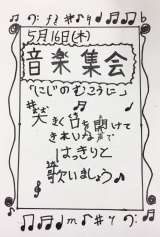 5月16日(木)
音楽集会
「にじのむこうに」
大きく口を開けて
きれいな声で
はっきりと
歌いましょう♪